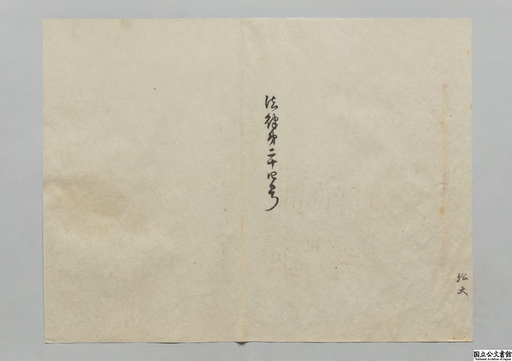 法律第二十四号
国立公文書館
National Archives of Japan